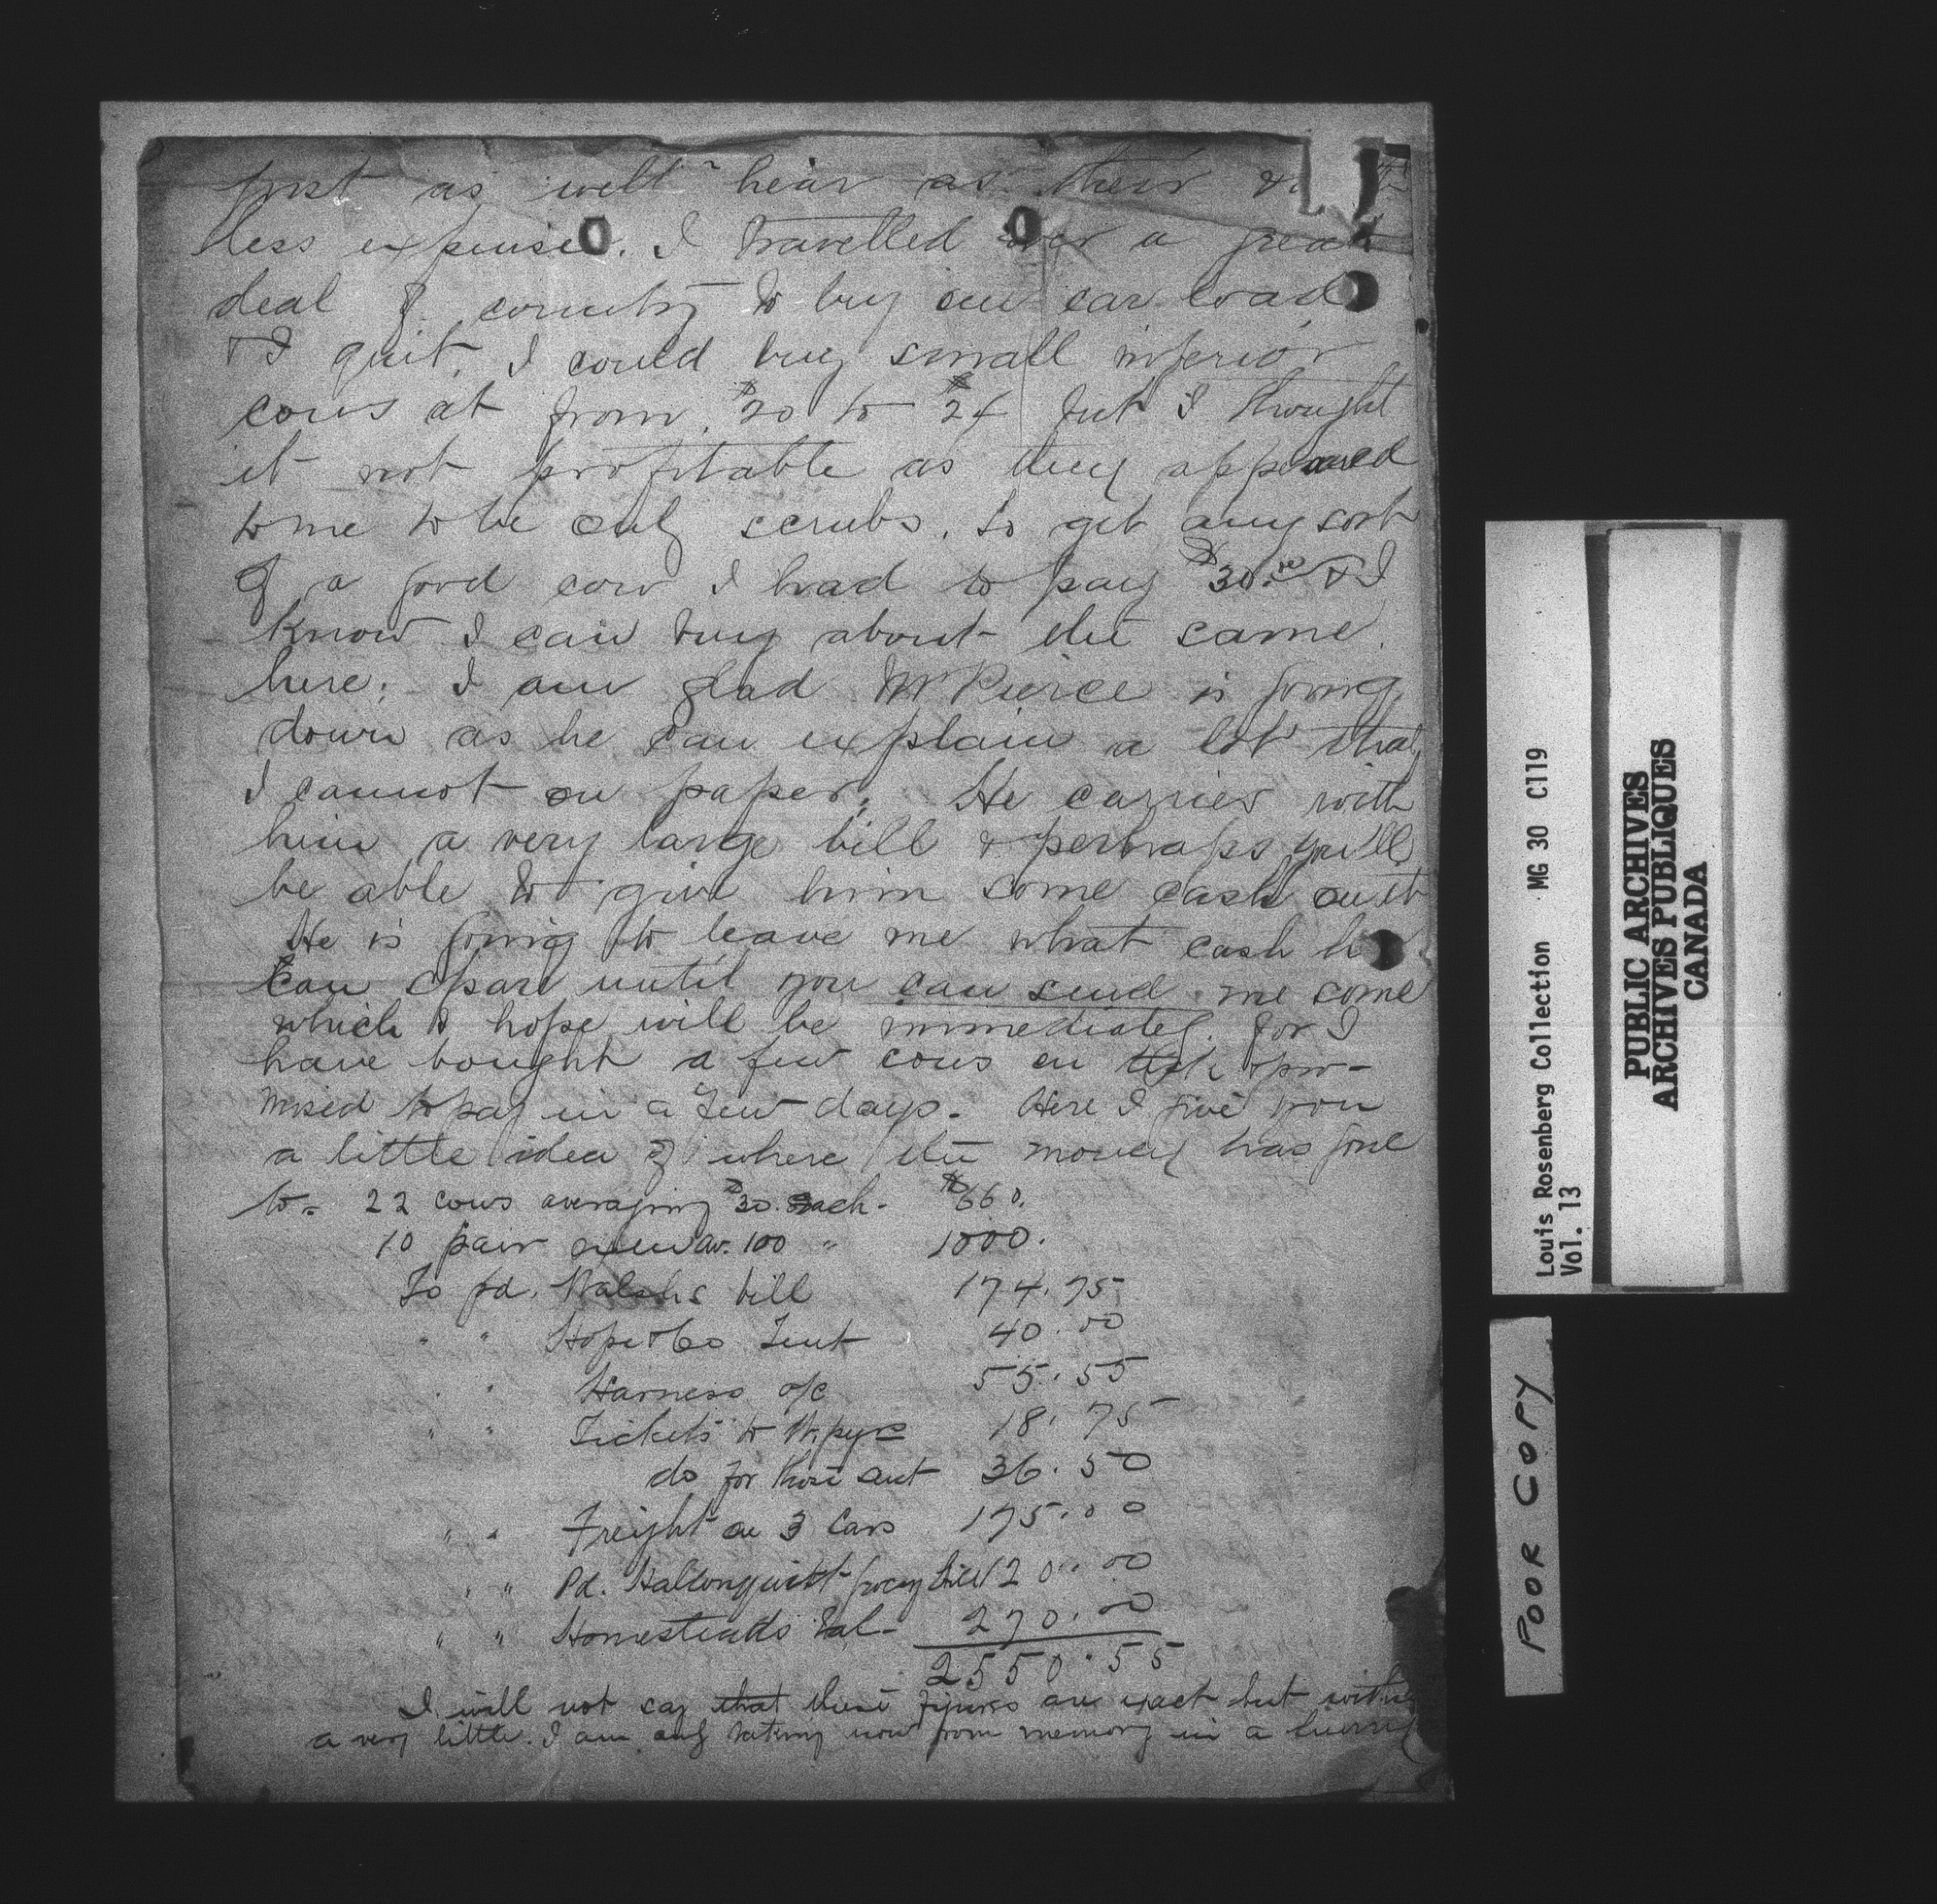 just as well hear as their &
less expense. I travelled over a great
deal of country to buy one car load
& I quit. I could buy small inferior
cows at from $20 to $24 but I thought
it not profitable as they appeared
to me to be only scrubs. to get any sort
of a good cow I had to pay $30.00 & I
know I can buy about the same
here. I am glad Mr Pierce is going
down as he can explain a lot that
I cannot on paper. He carries with
him a very large bill & perhaps you'll
be able to give him some cash on it
He is going to leave me what cash he
can spare until you can send me some
which I hope will be immediately. for I
have bought a few cows on tick & pro-
mised to pay in a few days. Here I give you
a little idea of where the money has gone
to- 22 cows averaging $30. each- $660.
10 pair oxen av. 100 " 1000.
To pd. Walshs bill 174.75
" " Hope & Co Tent 40.00
" " Harness a/c 55.55
" " Tickets to W.peg 18.75
do for those out 36.50
" " Freight on 3 Cars 175.00
" " Pd. Hallonquist grocery bill 120.00
" " Homesteads Bal- 270.00
2550.55
I will not say that these figures are exact but within
a very little. I am only taking now from memory in a hurry
Louis Rosenberg Collection MG 30 C119
Vol. 13
PUBLIC ARCHIVES
ARCHIVES PUBLIQUES
CANADA
POOR COPY